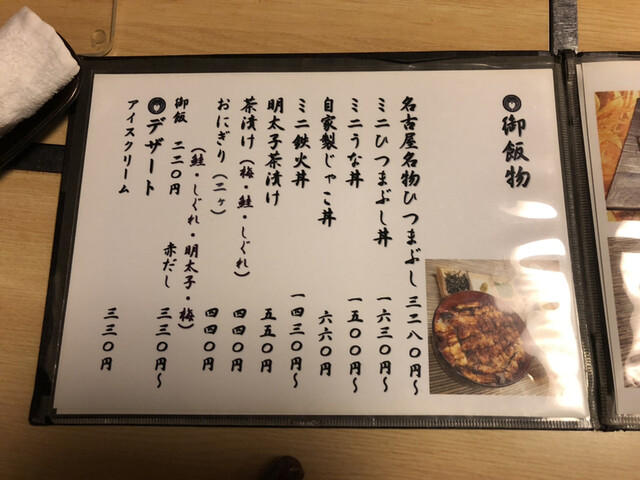 御飯物
名古屋名物ひつまぶし 三二八〇円～
ミニひつまぶし丼 一六三〇円～
ミニうな丼 一五〇〇円～
自家製じゃこ丼 六六〇円
ミニ鉄火丼 一四三〇円～
明太子茶漬け 五五〇円
茶漬け（梅・鮭・しぐれ） 四四〇円
おにぎり（二ヶ） 四四〇円
（鮭・しぐれ・明太子・梅）
御飯 二二〇円 赤だし 三三〇円～
デザート
アイスクリーム 三三〇円